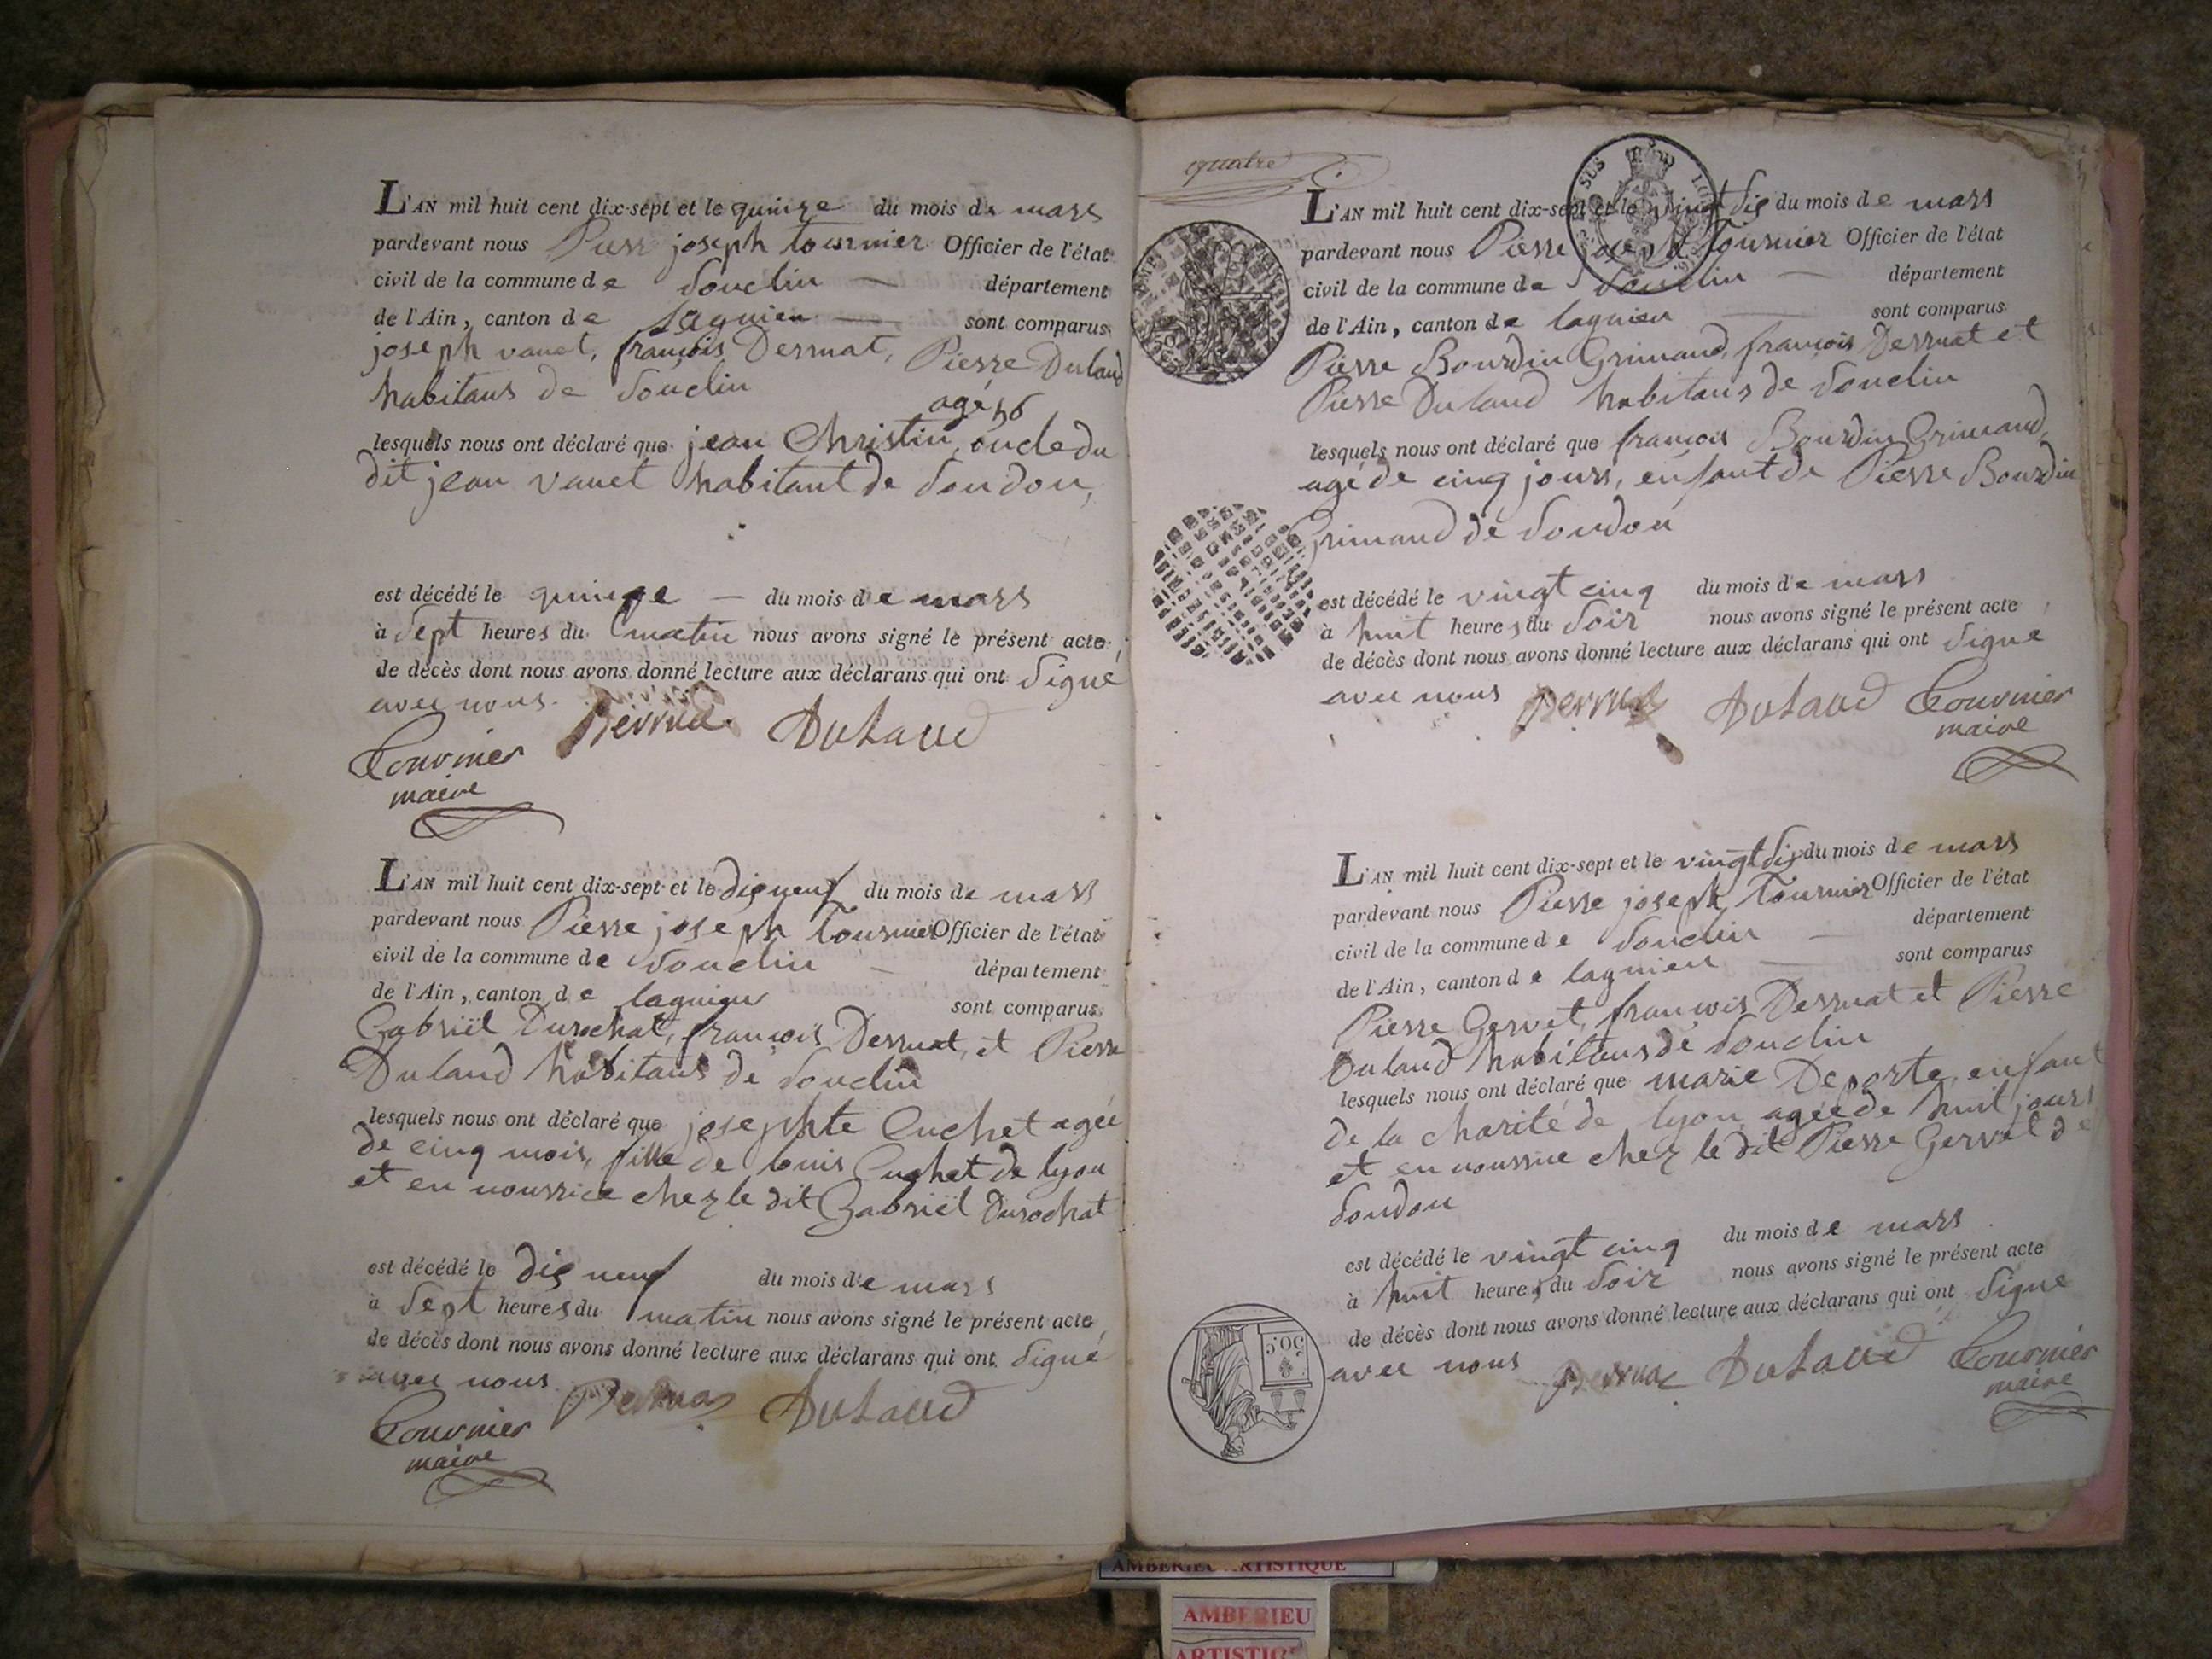 L'AN mil huit cent dix-sept et le quinze du mois de mars
pardevant nous Pierre joseph tournier Officier de l'état
civil de la commune de Souclin — département
de l'Ain, canton de lagnieu — sont comparus
joseph vanet, françois Derruat, Pierre Dulaud
habitans de Souclin
agé 56
lesquels nous ont déclaré que jean Christin, oncle du
dit jean vanet habitant de Soudon,
est décédé le quinze — du mois de mars
à Sept heures du matin nous avons signé le présent acte
de décès dont nous avons donné lecture aux déclarans qui ont Signé
avec nous.
Derruat Dulaud
Tournier
maire
L'AN mil huit cent dix-sept et le dix neuf du mois de mars
pardevant nous Pierre joseph Tournier Officier de l'état
civil de la commune de Souclin — département
de l'Ain, canton de lagnieu sont comparus
Gabriël Durochat, françois Derruat, et Pierre
Dulaud habitans de Souclin
lesquels nous ont déclaré que josephte Cuchet agée
de cinq mois, fille de louis Cuchet de lyon
et en nourrice chez le dit Gabriël Durochat
est décédé le dix neuf du mois de mars
à Sept heures du matin nous avons signé le présent acte
de décès dont nous avons donné lecture aux déclarans qui ont Signé
avec nous
Derruat Dulaud
Tournier
maire
quatre
L'AN mil huit cent dix-sept et le vingt six du mois de mars
pardevant nous Pierre joseph Tournier Officier de l'état
civil de la commune de Souclin — département
de l'Ain, canton de lagnieu — sont comparus
Pierre Bourdin Grimaud, françois Derruat et
Pierre Dulaud habitans de Souclin
lesquels nous ont déclaré que françois Bourdin Grimaud,
agé de cinq jours, enfant de Pierre Bourdin
Grimaud de Soudon
est décédé le vingt cinq du mois de mars
à huit heures du Soir nous avons signé le présent acte
de décès dont nous avons donné lecture aux déclarans qui ont Signé
avec nous Derruat Dulaud Tournier
maire
L'AN mil huit cent dix-sept et le vingt six du mois de mars
pardevant nous Pierre joseph Tournier Officier de l'état
civil de la commune de Souclin — département
de l'Ain, canton de lagnieu — sont comparus
Pierre Gervet, françois Derruat et Pierre
Dulaud habitans de Souclin
lesquels nous ont déclaré que marie Deporte, enfant
de la charité de lyon, agée de huit jours
et en nourrice chez le dit Pierre Gervet de
Soudon
est décédé le vingt cinq du mois de mars
à huit heures du Soir nous avons signé le présent acte
de décès dont nous avons donné lecture aux déclarans qui ont Signé
avec nous Derruat Dulaud Tournier
maire
50C
AMBERIEU ARTISTIQUE
AMBERIEU
ARTISTIQ